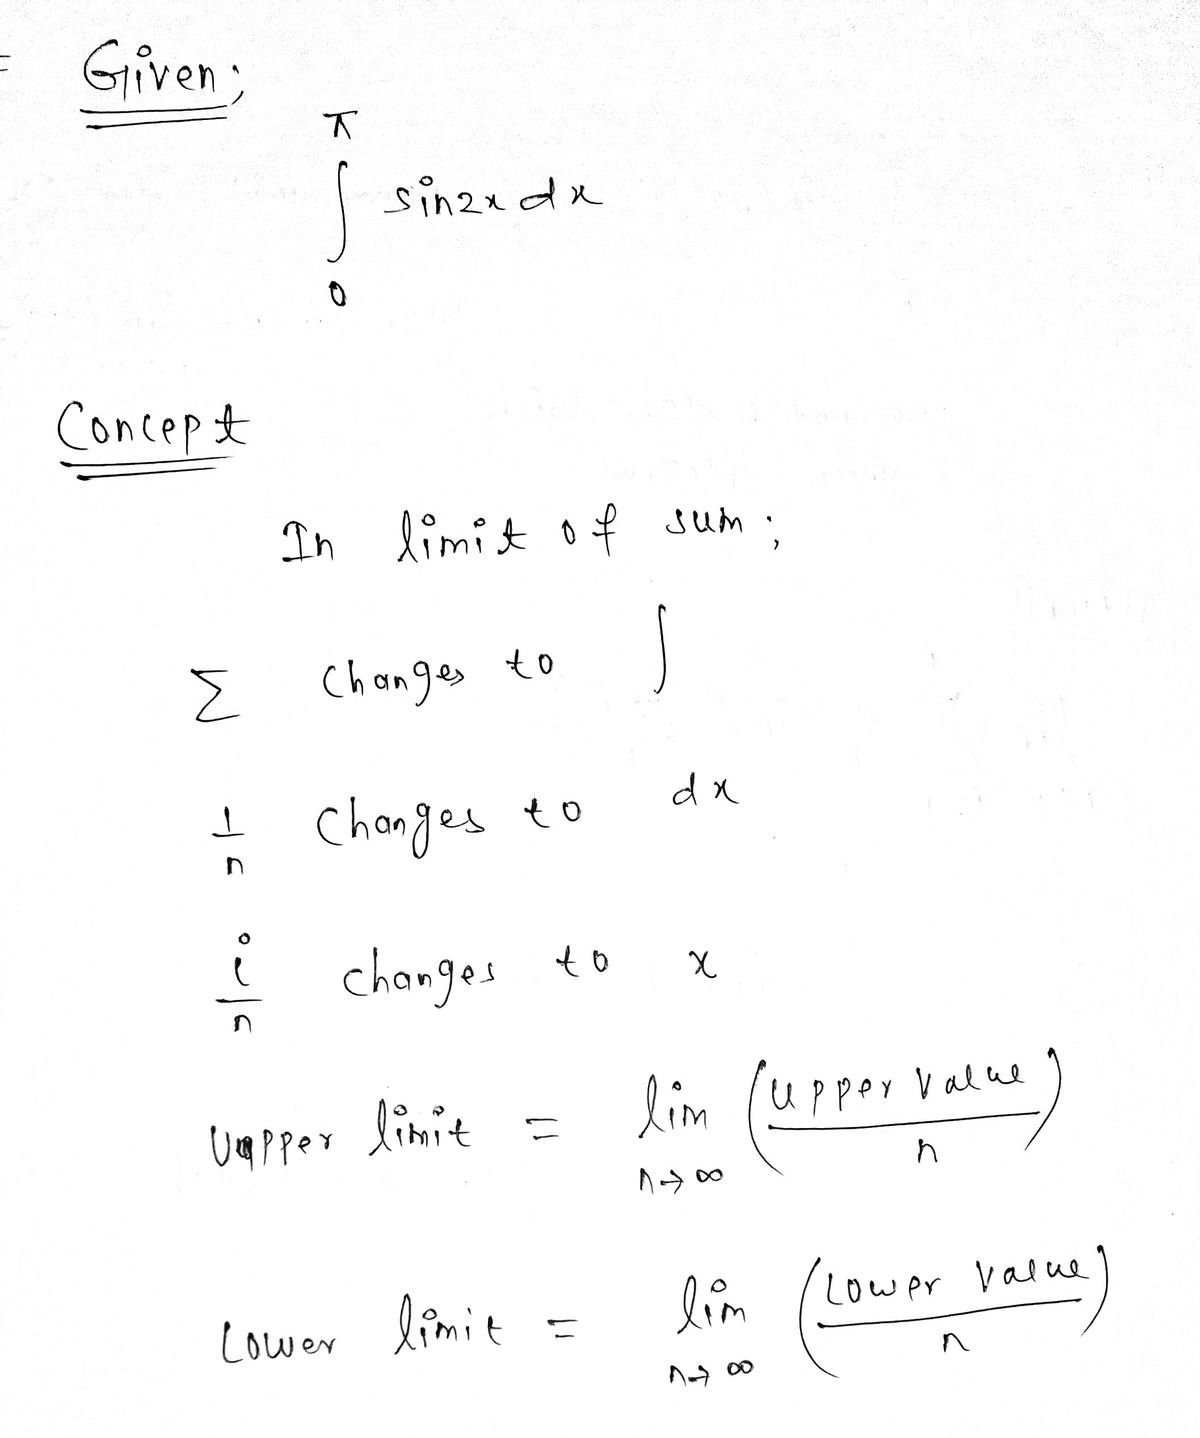 = Given;
π
∫ sin2x dx
0
Concept
In limit of sum;
Σ changes to ∫
1/n changes to dx
i/n changes to x
Upper limit = lim n→∞ (upper value / n)
Lower limit = lim n→∞ (Lower value / n)